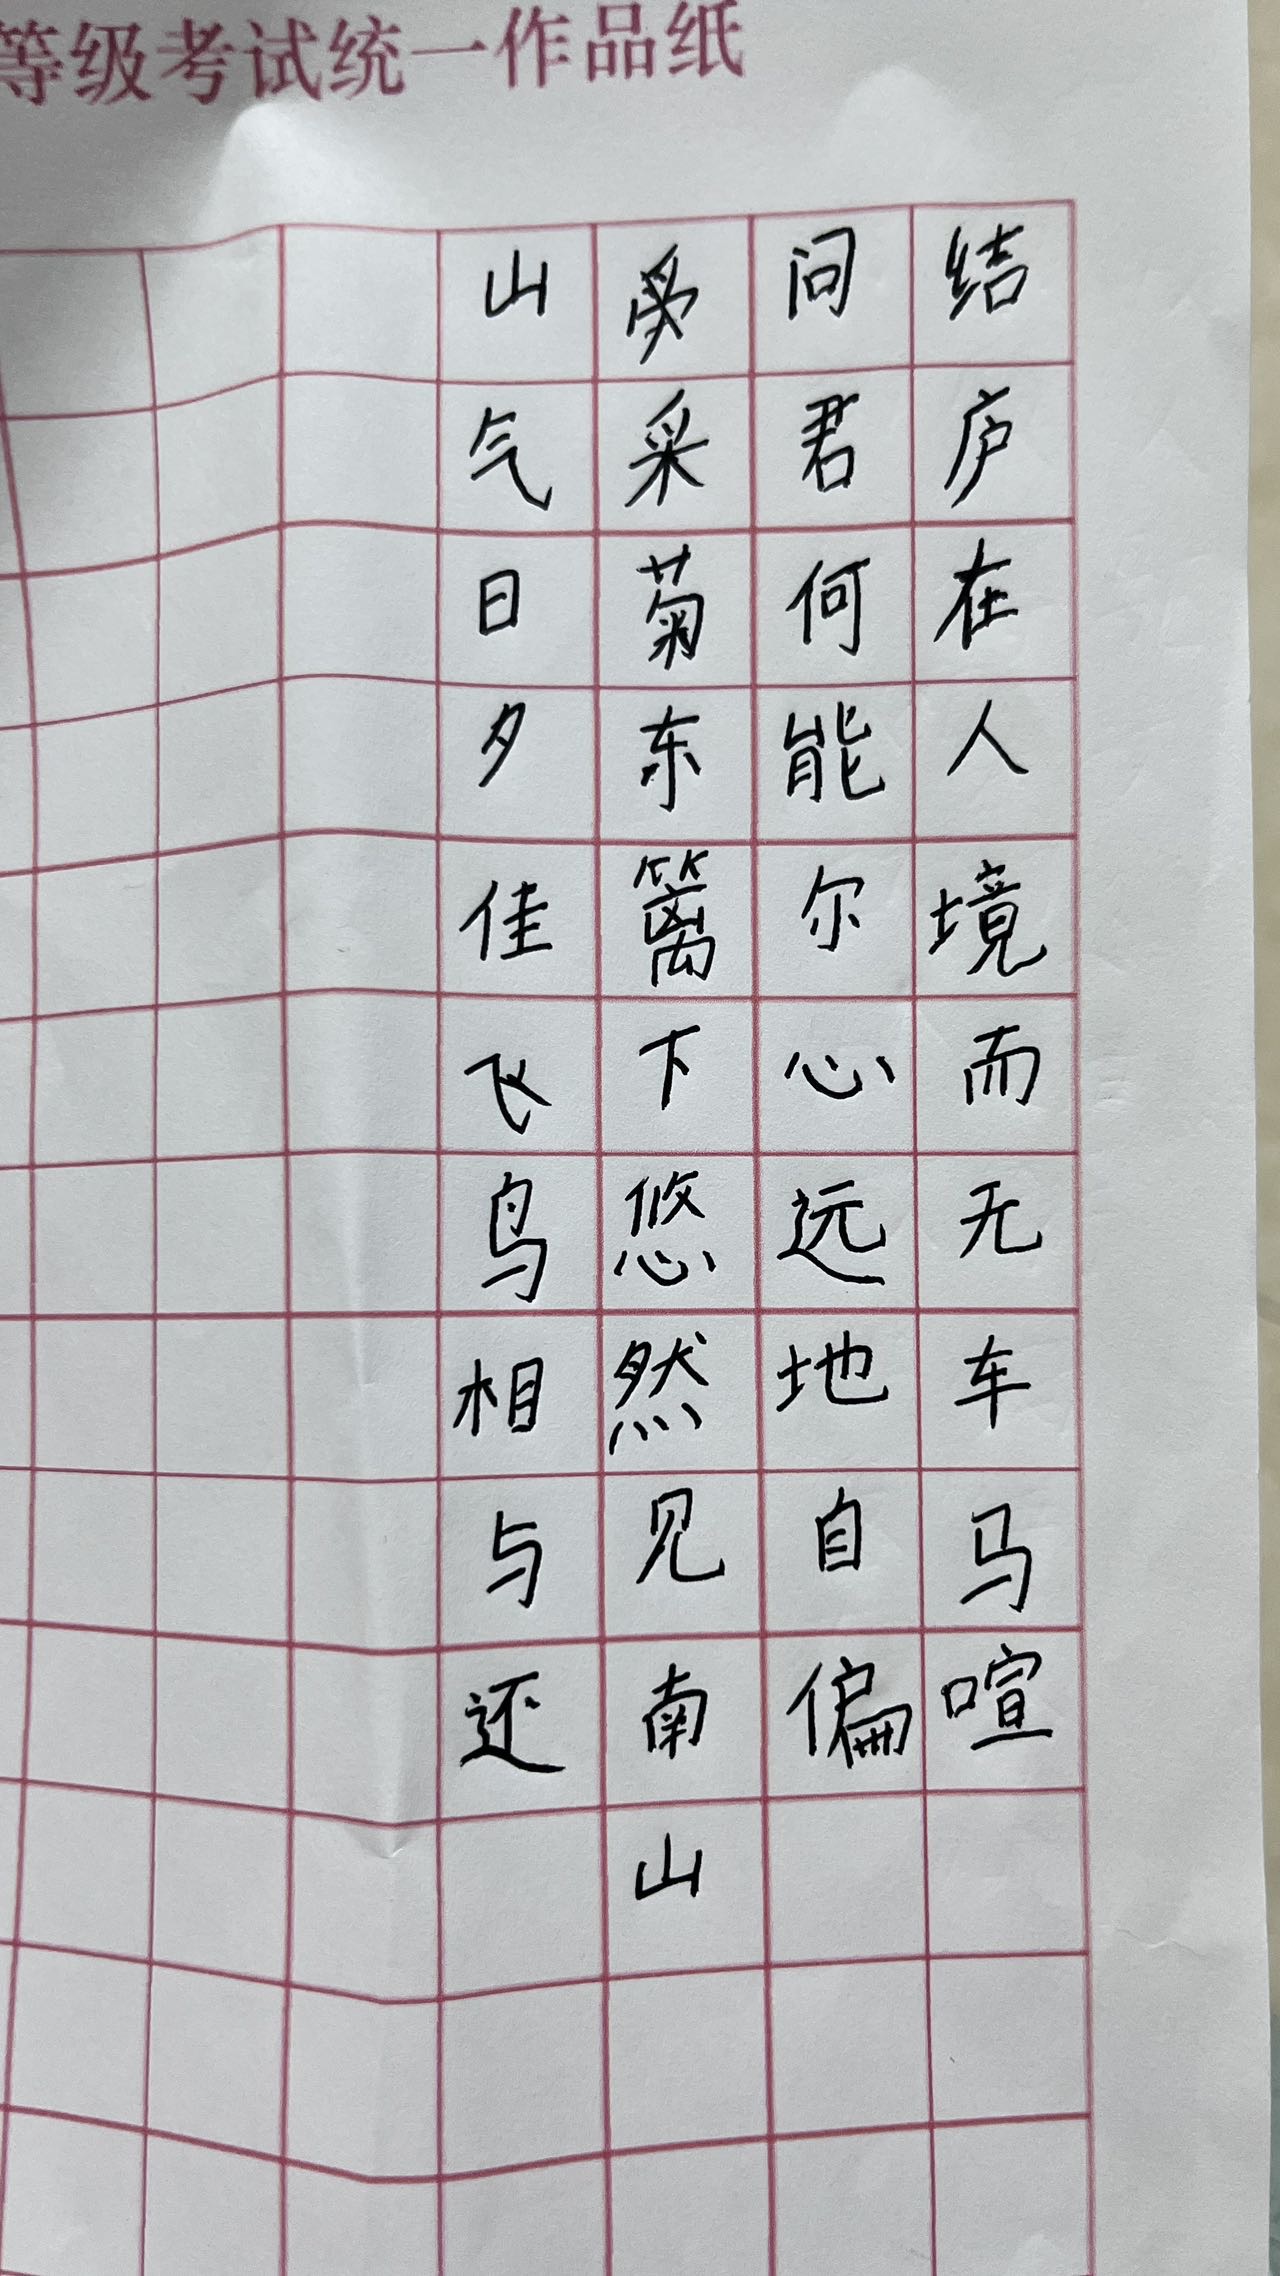 等级考试统一作品纸
结庐在人境而无车马喧
问君何能尔心远地自偏
采菊东篱下悠然见南山
山气日夕佳飞鸟相与还